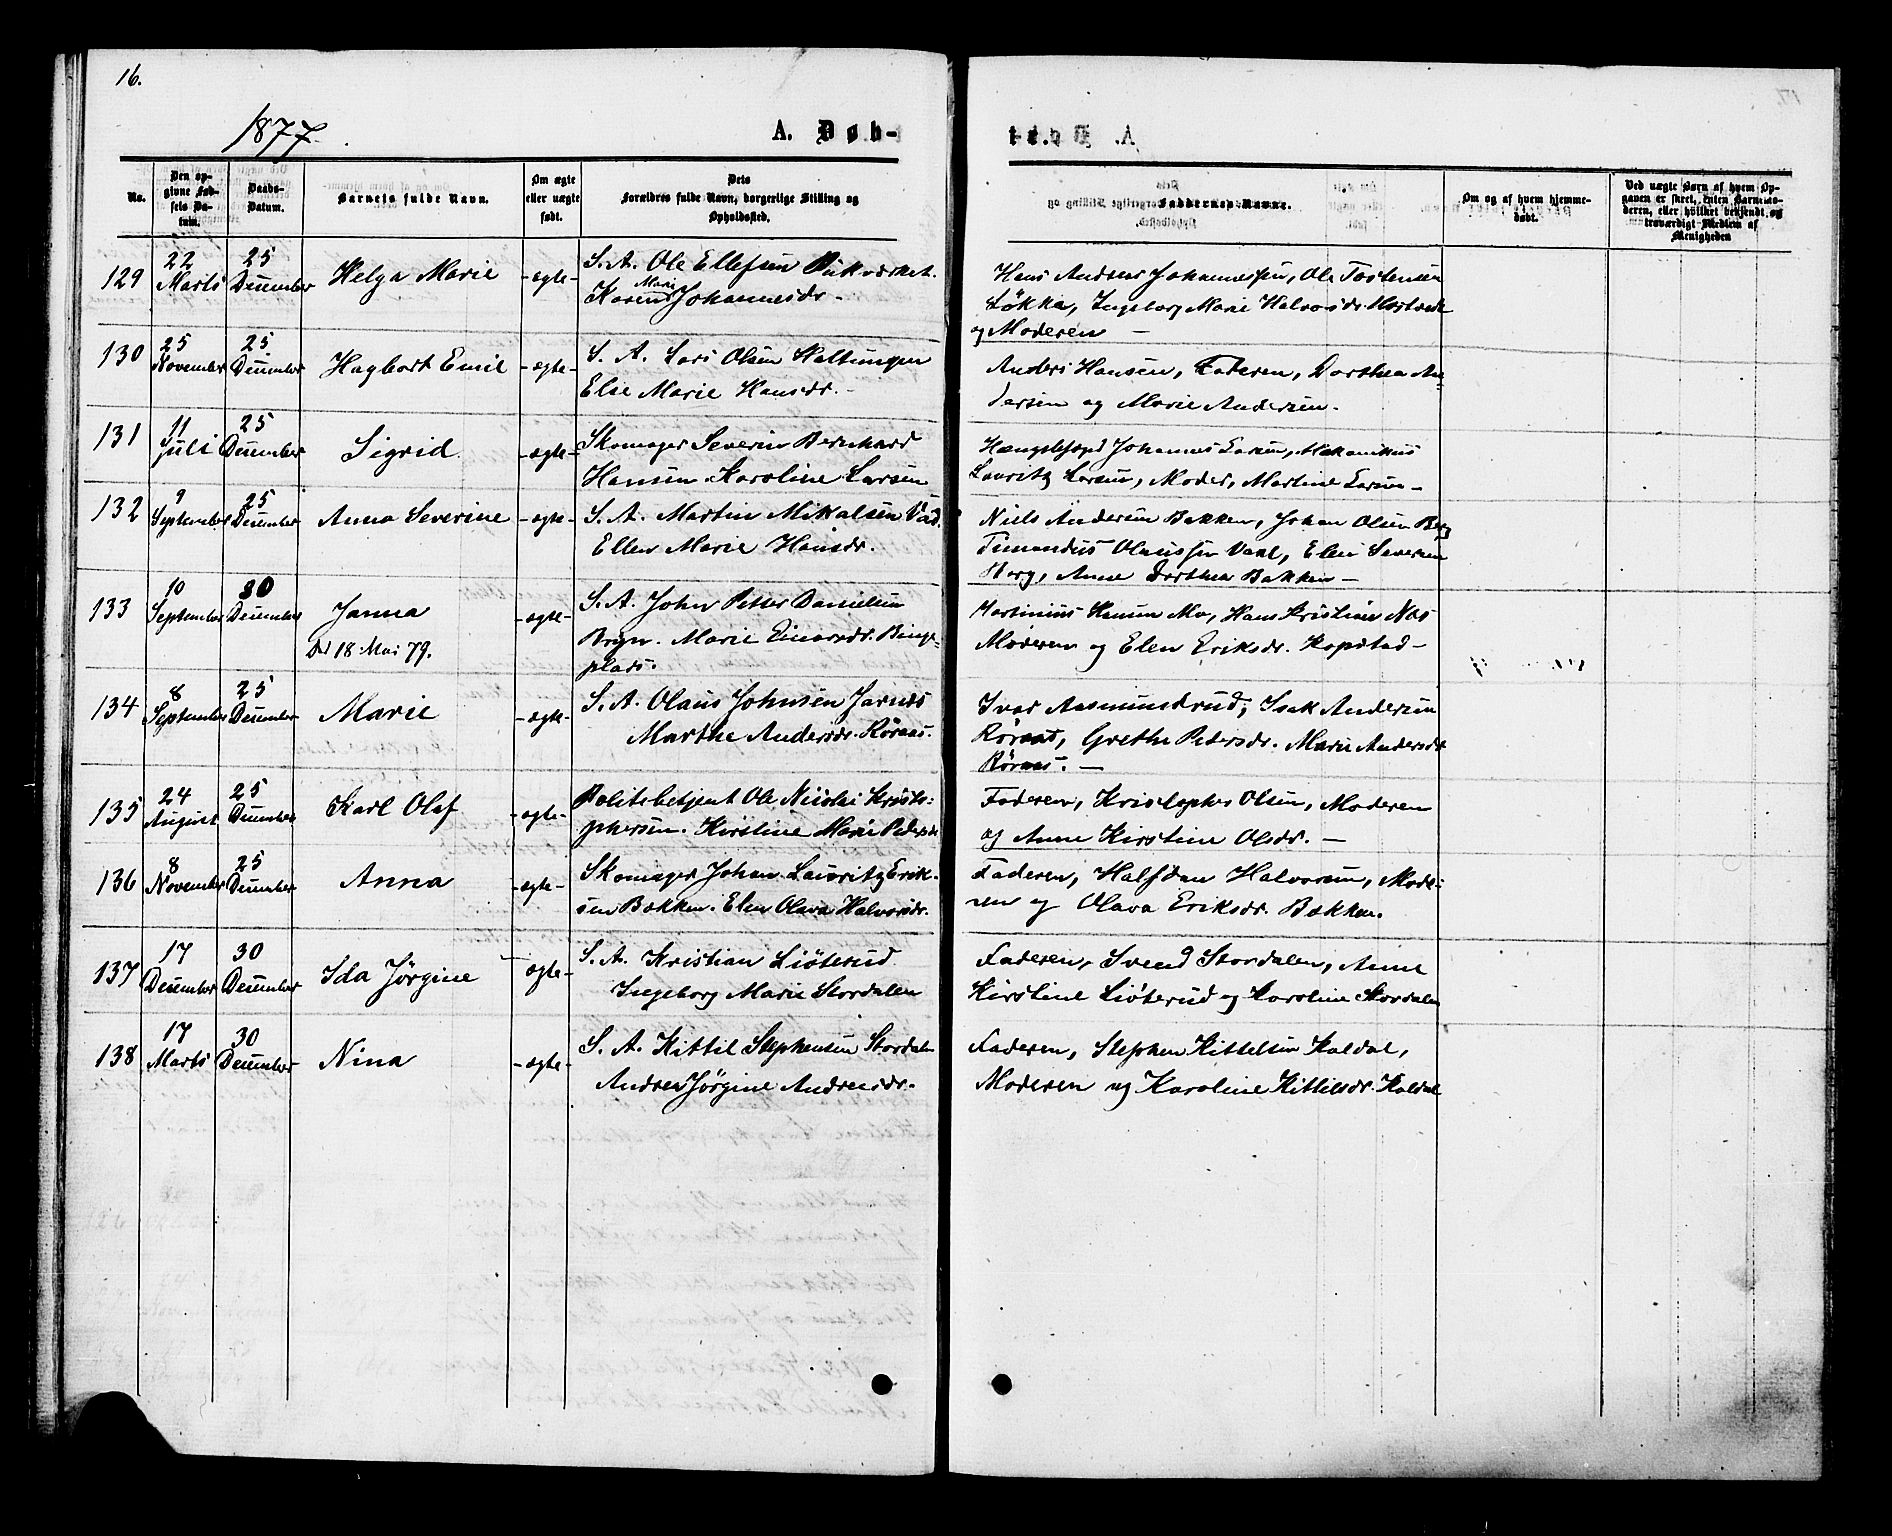 16.
1877.
A. Døb-
No.
Den op-
givne Fød-
sels Da-
tum.
Daabs-
Datum.
Barnets fulde Navn.
Om ægte
eller uægte
født.
Dets
Forældres fulde Navn, borgerlige Stilling og
Opholdssted.
Faddernes Navne.
Om og af hvem hjemme-
døbt.
Ved uægte Børn af hvem Op-
gaven er skeet, enten Barnemo-
deren, eller hvilket bekjendt og
troværdigt Medlem af
Menigheden
129
22
Marts
25
December
Helga Marie
- ægte -
S. A. Ole Ellefsen
Marie
Karen Johannesdr.
Hans Andreas Johannessen, Ole Tostensen
Løkka, Ingeborg Marie Halvorsdr.
og Moderen —
130
25
November
25
December
Hagbart Emil
- ægte -
S. A. Lars Olsen
Else Marie Hansdr.
Anders Hansen, Faderen, Dorthea An-
dersen og Marie Andersen.
131
11
Juli
25
December
Sigrid
- ægte -
Skomager Severin Bernhard
Hansen. Karoline Larsen
Johannes Larsen, Mekanikus
Lauritz Larsen, Moder, Martine Larsen -
132
9
September
25
December
Anna Severine
- ægte -
S. A. Martin Mikalsen
Ellen Marie Hansdr.
Niels Andersen Bakken, Johan Olsen Berg
Olaussen Vaal, Elen Severine
Berg, Anne Dorthea Bakken —
133
10
September
30
December
Janna
Dd 18 Mai 79.
- ægte -
S. A. John Petter Danielsen
Bryn. Marie Einarsdr. Binge-
plads.
Martinius Hansen Mo, Hans Kristian Næs
Moderen og Elen Eriksdr. Kopstad -
134
8
September
25
December
Marie
- ægte -
S. A. Olaus Johnsen Jarnæs
Marthe Andersdr. Røraas.
Ivar Aasmundrud, Isak Andersen
Røraas, Grethe Pedersdr. Marie Andersdr
Røraas. —
135
24
August
25
December
Karl Olaf
- ægte -
Politibetjent Ole Nicolai Kristo-
phersen. Kirstine Marie Pedersdr
Faderen, Kristopher Olsen, Moderen
og Anne Kirstine Olsdr. —
136
8
November
25
December
Anna
- ægte -
Skomager Johan Lauritz Erik-
sen Bakken. Elen Olava Halvorsdr.
Faderen, Halfdan Halvorsen, Mode-
ren og Olava Eriksdr. Bakken.
137
17
December
30
December
Ida Jørgine
- ægte -
S. A. Kristian Liøterud
Ingeborg Marie Stordalen
Faderen, Svend Stordalen, Anne
Kirstine Liøterud og Karoline Stordalen
138
17
Marts
30
December
Nina
- ægte -
S. A. Kittil Stephensen Stordalen
Andrea Jørgine Andreasdr.
Faderen, Stephen Kittelsen Kaldal,
Moderen og Karoline Kittilsdr. Kaldal